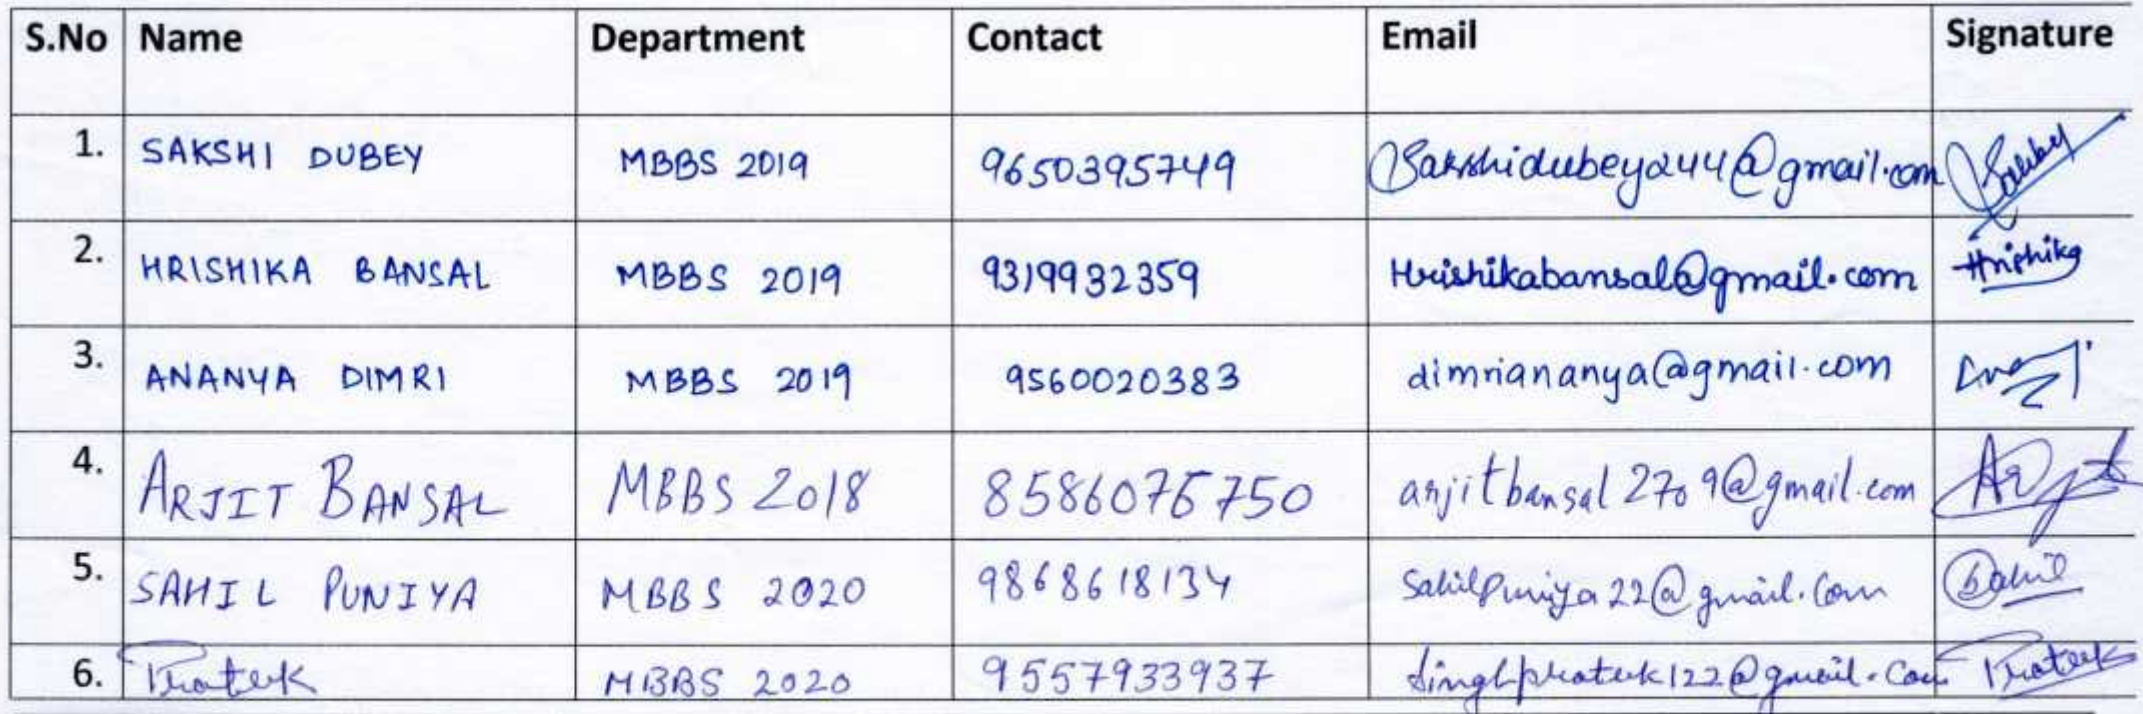 S.No Name Department Contact Email Signature
1. SAKSHI DUBEY MBBS 2019 9650395749 Sakshidubey244@gmail.com
2. HRISHIKA BANSAL MBBS 2019 9319932359 Hrishikabansal@gmail.com Hrishika
3. ANANYA DIMRI MBBS 2019 9560020383 dimriananya@gmail.com
4. ARJIT BANSAL MBBS 2018 8586075750 arjitbansal2709@gmail.com Arjit
5. SAHIL PUNIYA MBBS 2020 9868618134 Sahilpuniya22@gmail.com Sahil
6. Prateek MBBS 2020 9557933937 singhprateek122@gmail.com Prateek